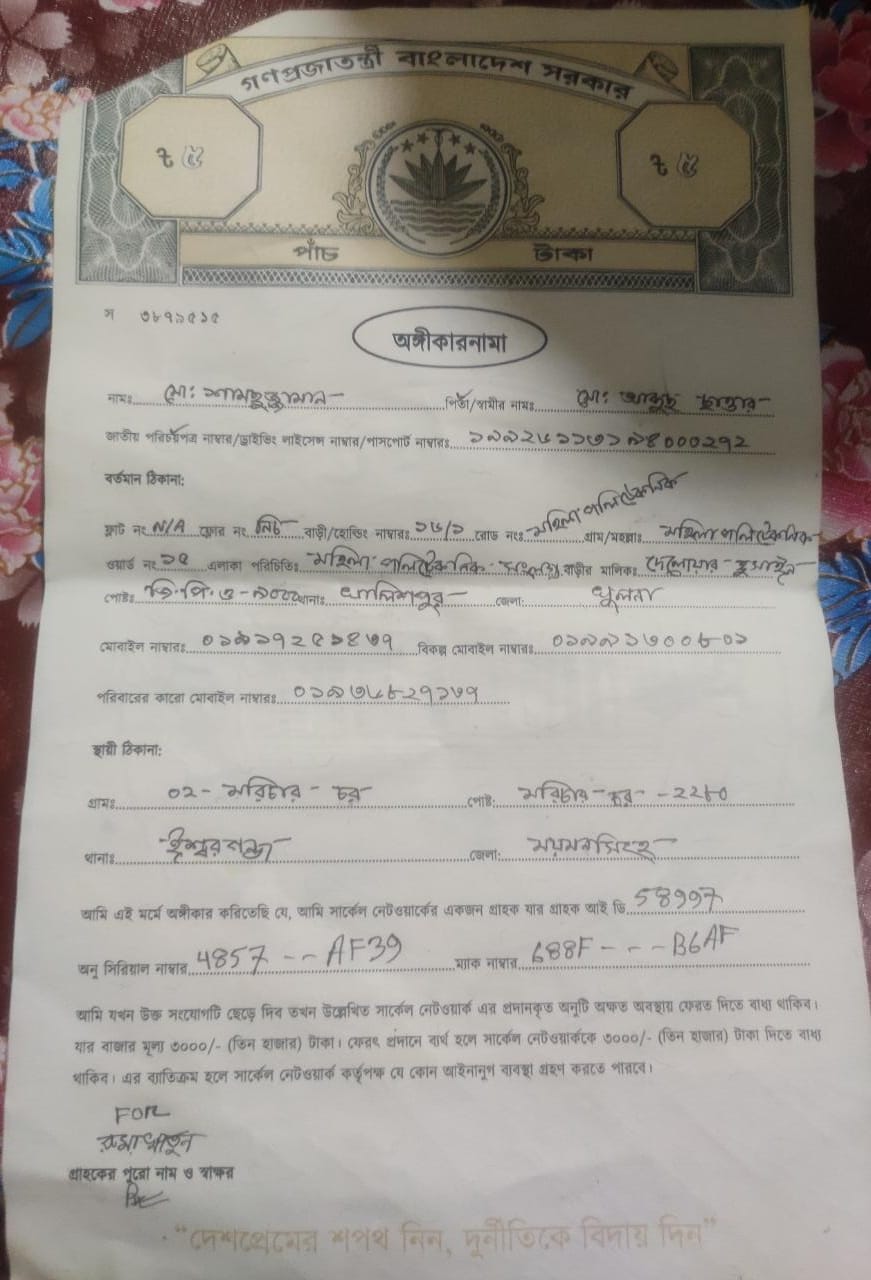 গণপ্রজাতন্ত্রী বাংলাদেশ সরকার
৳ ৫ ৳ ৫
পাঁচ টাকা
স ৩৮৭১৫১৫
অঙ্গীকারনামা
নামঃ মো: শামছুজ্জামান পিতা/স্বামীর নামঃ মো: আব্দুছ ছাত্তার
জাতীয় পরিচয়পত্র নাম্বার/ড্রাইভিং লাইসেন্স নাম্বার/পাসপোর্ট নাম্বারঃ
বর্তমান ঠিকানা:
ফ্লাট নং N/A ফ্লোর নং নিচ বাড়ী/হোল্ডিং নাম্বারঃ ১৬/১ রোড নংঃ মহিলা পলিটেকনিক গ্রাম/মহল্লাঃ মহিলা পলিটেকনিক
ওয়ার্ড নং ১৫ এলাকা পরিচিতিঃ মহিলা পলিটেকনিক সংলগ্ন বাড়ীর মালিকঃ দেলোয়ার হুসাইন
পোষ্টঃ জি.পি.ও-৯০০০ থানাঃ খালিশপুর জেলা: খুলনা
মোবাইল নাম্বারঃ ০১৯১৭২৫১৪৭৭ বিকল্প মোবাইল নাম্বারঃ
পরিবারের কারো মোবাইল নাম্বারঃ
স্থায়ী ঠিকানা:
গ্রামঃ ০২- মরিচার - চর পোষ্ট: মরিচার - চর - ২২৮০
থানাঃ ঈশ্বরগঞ্জ জেলা: ময়মনসিংহ
আমি এই মর্মে অঙ্গীকার করিতেছি যে, আমি সার্কেল নেটওয়ার্কের একজন গ্রাহক যার গ্রাহক আই ডি 58997
অনু সিরিয়াল নাম্বার 4857 -- AF39 ম্যাক নাম্বার 688F --- B6AF
আমি যখন উক্ত সংযোগটি ছেড়ে দিব তখন উল্লেখিত সার্কেল নেটওয়ার্ক এর প্রদানকৃত অনুটি অক্ষত অবস্থায় ফেরত দিতে বাধ্য থাকিব।
যার বাজার মূল্য ৩০০০/- (তিন হাজার) টাকা। ফেরৎ প্রদানে ব্যর্থ হলে সার্কেল নেটওয়ার্ককে ৩০০০/- (তিন হাজার) টাকা দিতে বাধ্য
থাকিব। এর ব্যতিক্রম হলে সার্কেল নেটওয়ার্ক কর্তৃপক্ষ যে কোন আইনানুগ ব্যবস্থা গ্রহণ করতে পারবে।
FOR
রুমা খাতুন
গ্রাহকের পুরো নাম ও স্বাক্ষর
"দেশপ্রেমের শপথ নিন, দুর্নীতিকে বিদায় দিন"